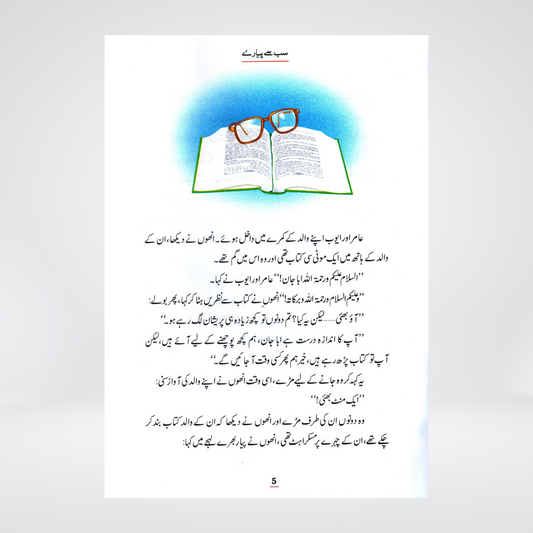 سب سے پیارے
عامر اور ایوب اپنے والد کے کمرے میں داخل ہوئے۔ انھوں نے دیکھا، ان کے
والد کے ہاتھ میں ایک موٹی سی کتاب تھی اور وہ اس میں گم تھے۔
’’السلام علیکم ورحمۃ اللہ ابا جان!‘‘ عامر اور ایوب نے کہا۔
’’وعلیکم السلام ورحمۃ اللہ وبرکاتہ!‘‘ انھوں نے کتاب سے نظریں ہٹا کر کہا، پھر بولے:
’’آؤ بھئی......لیکن یہ کیا؟ تم دونوں تو کچھ زیادہ ہی پریشان لگ رہے ہو۔‘‘
’’آپ کا اندازہ درست ہے ابا جان، ہم کچھ پوچھنے کے لیے آئے ہیں، لیکن
آپ تو کتاب پڑھ رہے ہیں، خیر ہم پھر کسی وقت آ جائیں گے۔‘‘
یہ کہہ کر وہ جانے کے لیے مڑے، اسی وقت انھوں نے اپنے والد کی آواز سنی:
’’ایک منٹ بھئی!‘‘
وہ دونوں ان کی طرف مڑے اور انھوں نے دیکھا کہ ان کے والد کتاب بند کر
چکے تھے، ان کے چہرے پر مسکراہٹ تھی، انھوں نے پیار بھرے لہجے میں کہا:
5